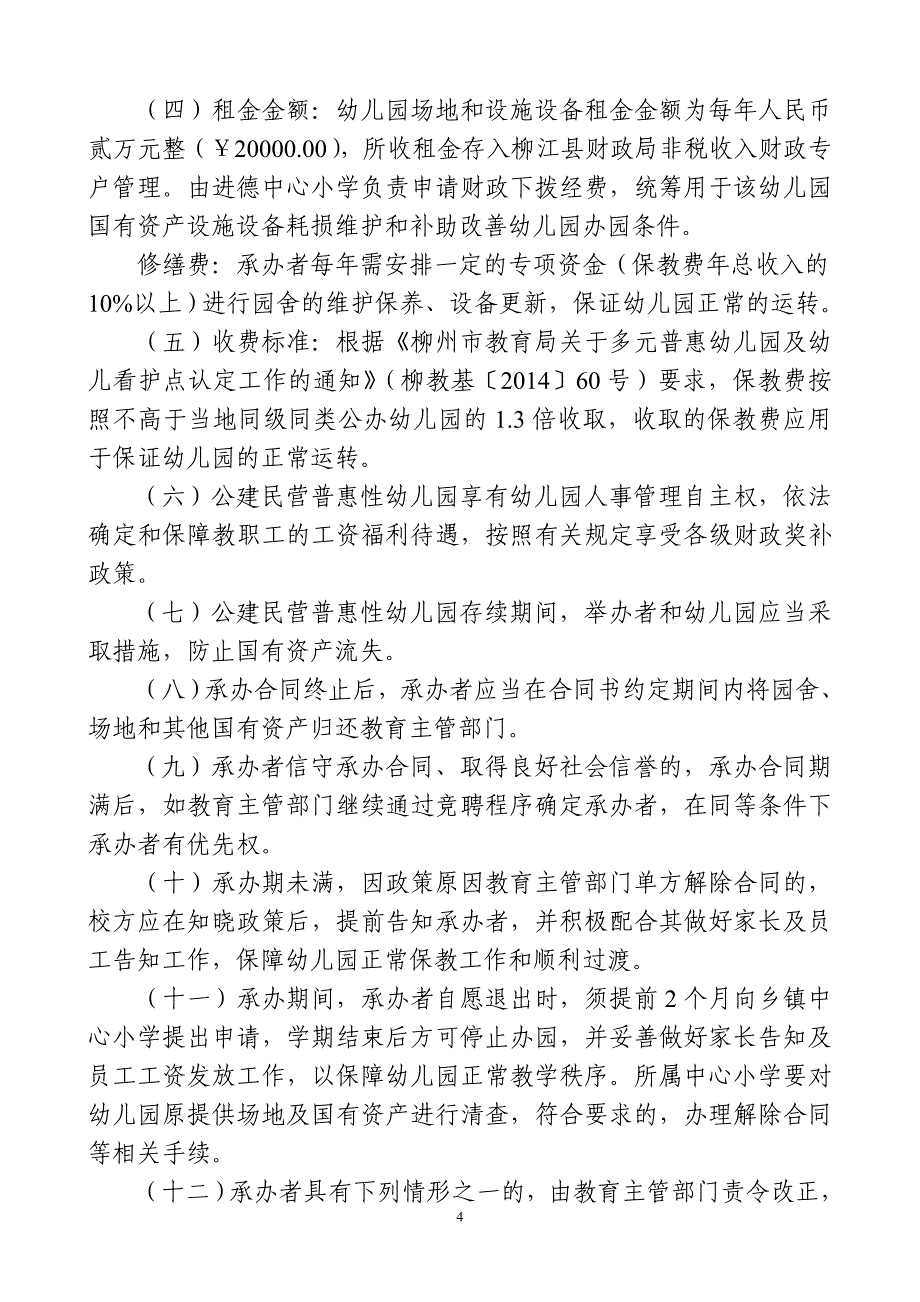 （四）租金金额：幼儿园场地和设施设备租金金额为每年人民币
贰万元整（￥20000.00），所收租金存入柳江县财政局非税收入财政专
户管理。由进德中心小学负责申请财政下拨经费，统筹用于该幼儿园
国有资产设施设备耗损维护和补助改善幼儿园办园条件。
修缮费：承办者每年需安排一定的专项资金（保教费年总收入的
10%以上）进行园舍的维护保养、设备更新，保证幼儿园正常的运转。
（五）收费标准：根据《柳州市教育局关于多元普惠幼儿园及幼
儿看护点认定工作的通知》（柳教基〔2014〕60 号）要求，保教费按
照不高于当地同级同类公办幼儿园的 1.3 倍收取，收取的保教费应用
于保证幼儿园的正常运转。
（六）公建民营普惠性幼儿园享有幼儿园人事管理自主权，依法
确定和保障教职工的工资福利待遇，按照有关规定享受各级财政奖补
政策。
（七）公建民营普惠性幼儿园存续期间，举办者和幼儿园应当采
取措施，防止国有资产流失。
（八）承办合同终止后，承办者应当在合同书约定期间内将园舍、
场地和其他国有资产归还教育主管部门。
（九）承办者信守承办合同、取得良好社会信誉的，承办合同期
满后，如教育主管部门继续通过竞聘程序确定承办者，在同等条件下
承办者有优先权。
（十）承办期未满，因政策原因教育主管部门单方解除合同的，
校方应在知晓政策后，提前告知承办者，并积极配合其做好家长及员
工告知工作，保障幼儿园正常保教工作和顺利过渡。
（十一）承办期间，承办者自愿退出时，须提前 2 个月向乡镇中
心小学提出申请，学期结束后方可停止办园，并妥善做好家长告知及
员工工资发放工作，以保障幼儿园正常教学秩序。所属中心小学要对
幼儿园原提供场地及国有资产进行清查，符合要求的，办理解除合同
等相关手续。
（十二）承办者具有下列情形之一的，由教育主管部门责令改正，
4